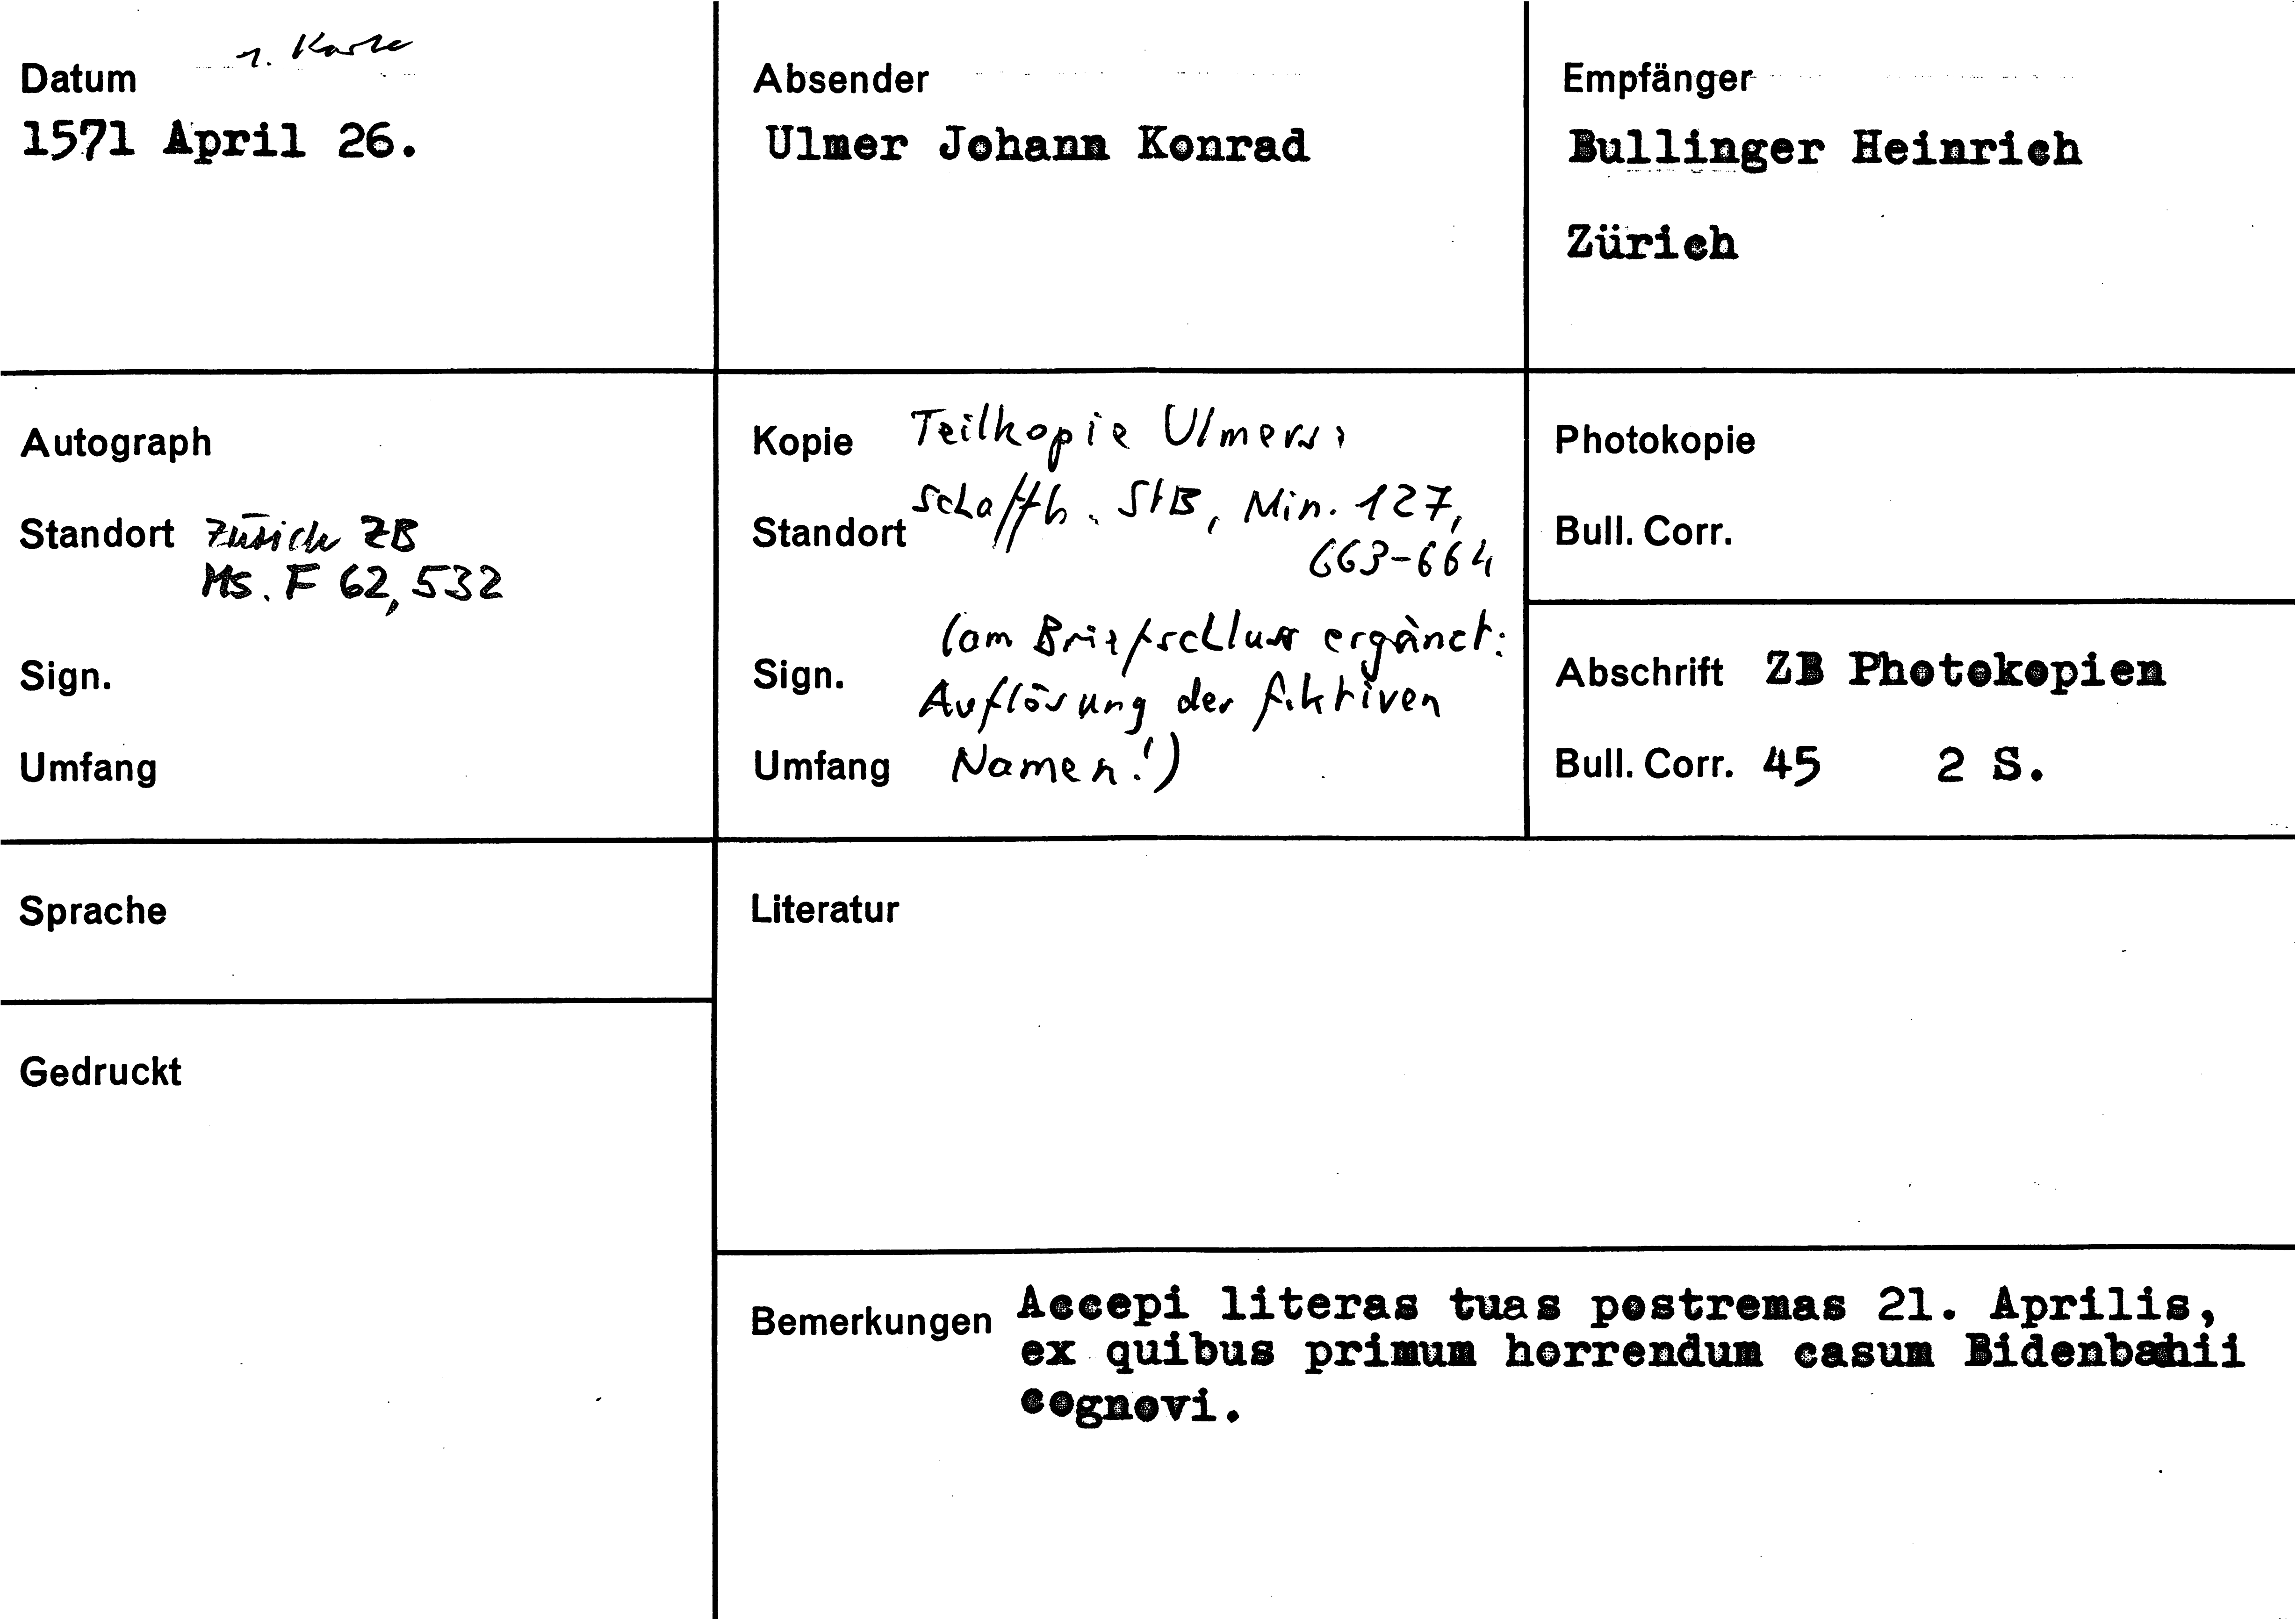 1. Karte
Datum
1571 April 26.
Absender
Ulmer Johann Konrad
Empfänger
Bullinger Heinrich
Zürich
Autograph
Standort Zürich ZB
Ms. F 62, 532
Sign.
Umfang
Kopie Teilkopie Ulmers:
Standort Schaffh. StB, Min. 127,
663-664
(am Briefschluss ergänzt:
Sign. Auflösung der fiktiven
Umfang Namen!)
Photokopie
Bull. Corr.
Abschrift ZB Photokopien
Bull. Corr. 45 2 S.
Sprache
Gedruckt
Literatur
Bemerkungen Accepi literas tuas postremas 21. Aprilis,
ex quibus primum horrendum casum Bidenbahii
cognovi.